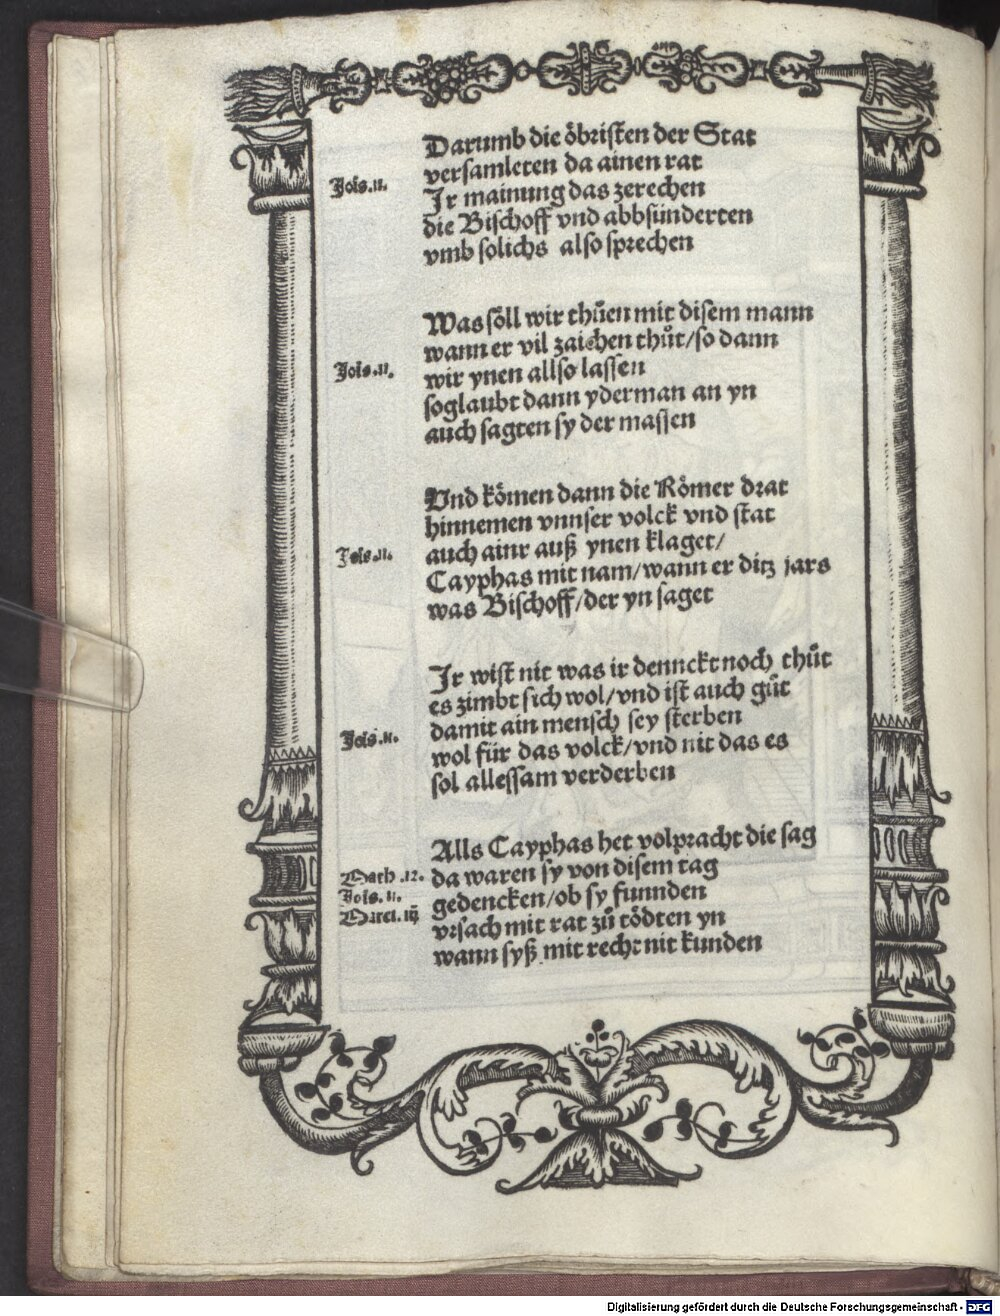 Darumb die öbristen der Stat
versamleten da ainen rat
Jois.11.
Ir mainung das zerechen
die Bischoff vnd abbsünderten
vmb solichs also sprechen
Was söll wir thůen mit disem mann
wann er vil zaichen thůt/so dann
Jois.11.
wir ynen allso lassen
soglaubt dann yderman an yn
auch sagten sy der massen
Vnd kömen dann die Römer drat
hinnemen vnnser volck vnd stat
Jois.11.
auch ainr auß ynen klaget/
Cayphas mit nam/wann er ditz jars
was Bischoff/der yn saget
Ir wist nit was ir denckt noch thůt
es zimbt sich wol/vnd ist auch gůt
damit ain mensch sey sterben
Jois.11.
wol für das volck/vnd nit das es
sol allessam verderben
Alls Cayphas het volpracht die sag
Math.12.
da waren sy von disem tag
Jois.11.
gedencken/ob sy funnden
Marci.
vrsach mit rat zů tödten yn
wann syß mit recht nit kunden
Digitalisierung gefördert durch die Deutsche Forschungsgemeinschaft - DFG